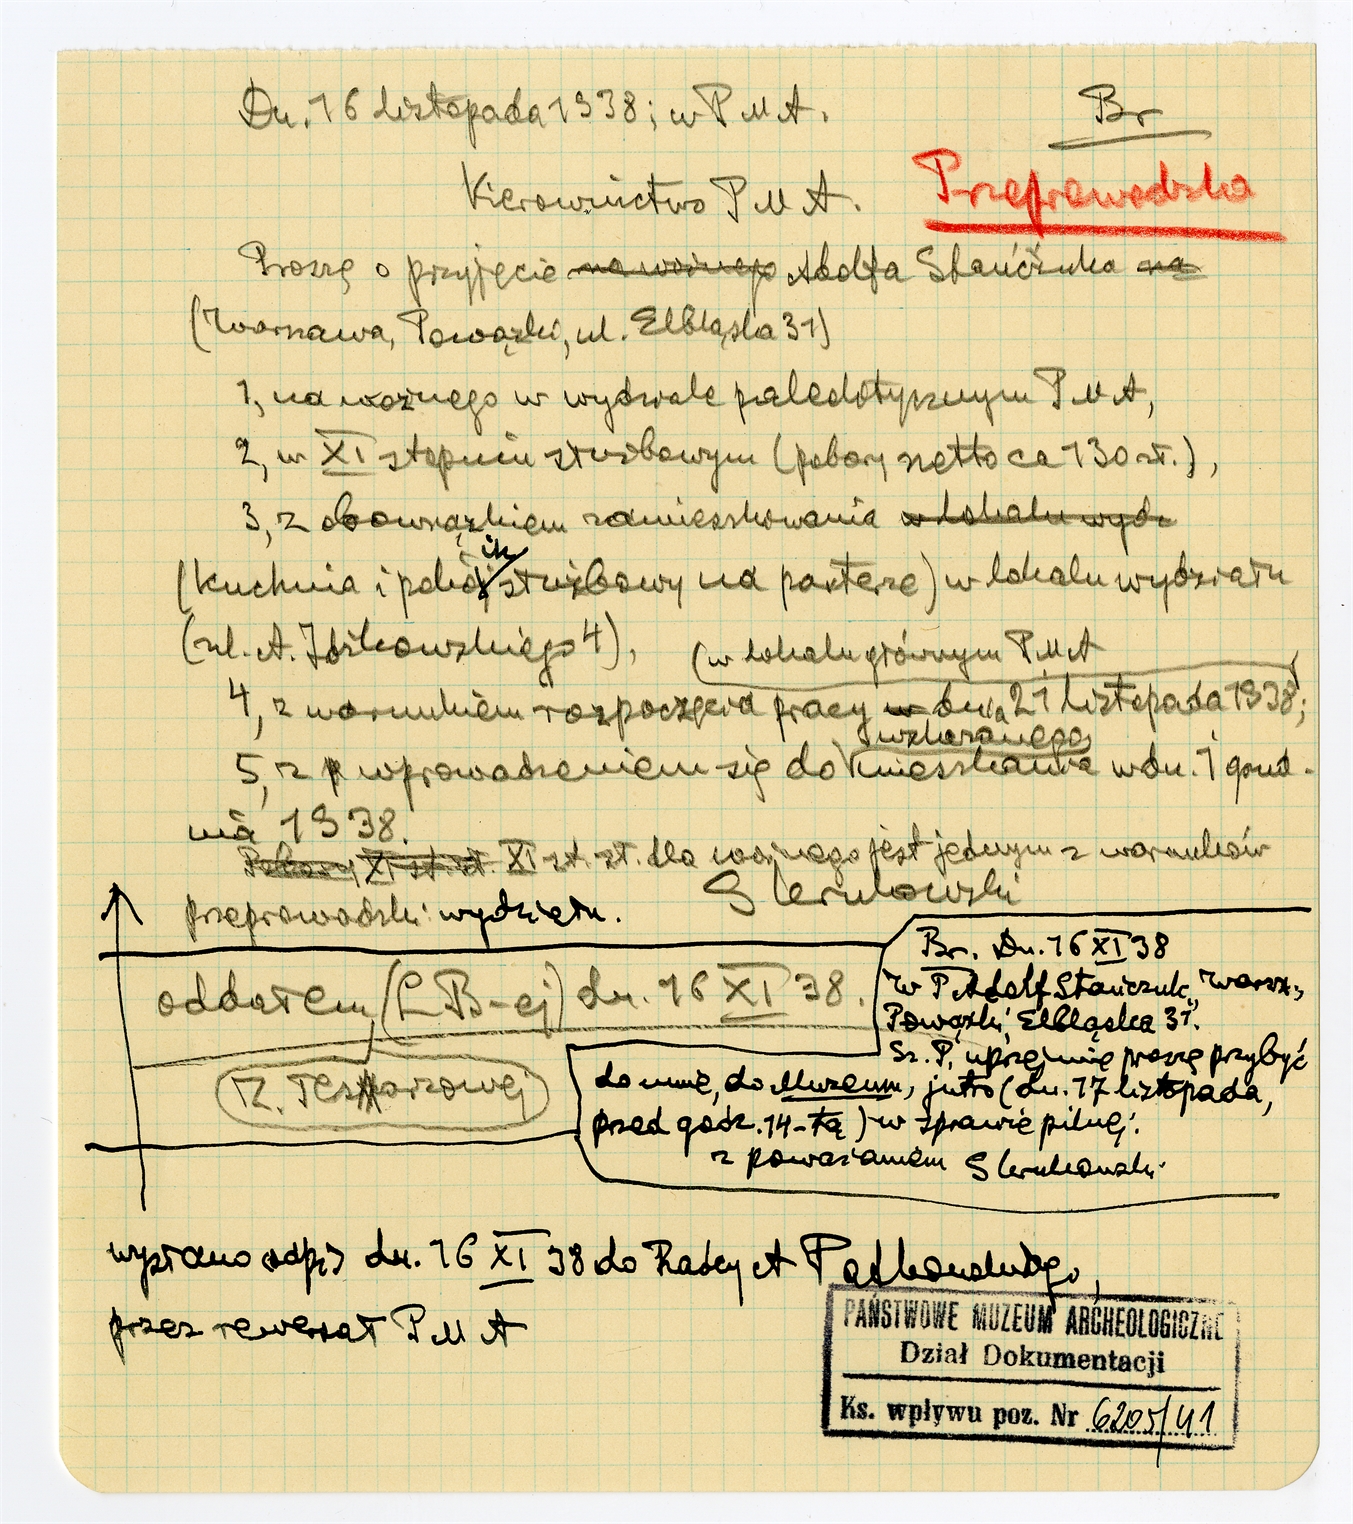 Dn. 16 listopada 1938; w P M A.
Br
Kierownictwo P M A.
Przeprowadzka
Proszę o przyjęcie na woźnego Adolfa Stańczuka na
(Warszawa, Powązki, ul. Elbląska 31)
1, na woźnego w wydziale paleolitycznym P M A,
2, w XI stopniu służbowym (pobory netto ca 130 zł.),
3, z obowiązkiem zamieszkowania w lokalu wydz
(kuchnia i pokoik służbowy na parterze) w lokalu wydziału
(ul. A. 4),
(w lokalu głównym P M A
4, z warunkiem rozpoczęcia pracy w dnia 21 listopada 1938;
wskazanego
5, z wprowadzeniem się do mieszkania w dn. 1 grud-
nia 1938.
Pobory XI st. sł. XI st. sł. dla woźnego jest jednym z warunków
przeprowadzki wydziału.
S Krukowski
oddałem (L B-ej) dn. 16 XI 38.
Br. Dn. 16 XI 38
W P Adolf Stańczuk, Warsz.,
Powązki, Elbląska 31.
Sz. P., uprzejmie proszę przybyć
do mnie, do Muzeum, jutro (dn. 17 listopada,
przed godz. 14-tą) w sprawie pilnej.
z poważaniem S Krukowski
wysłano odpis dn. 16 XI 38 do Radcy A
przez P M A
PAŃSTWOWE MUZEUM ARCHEOLOGICZNE
Dział Dokumentacji
Ks. wpływu poz. Nr 6205/41